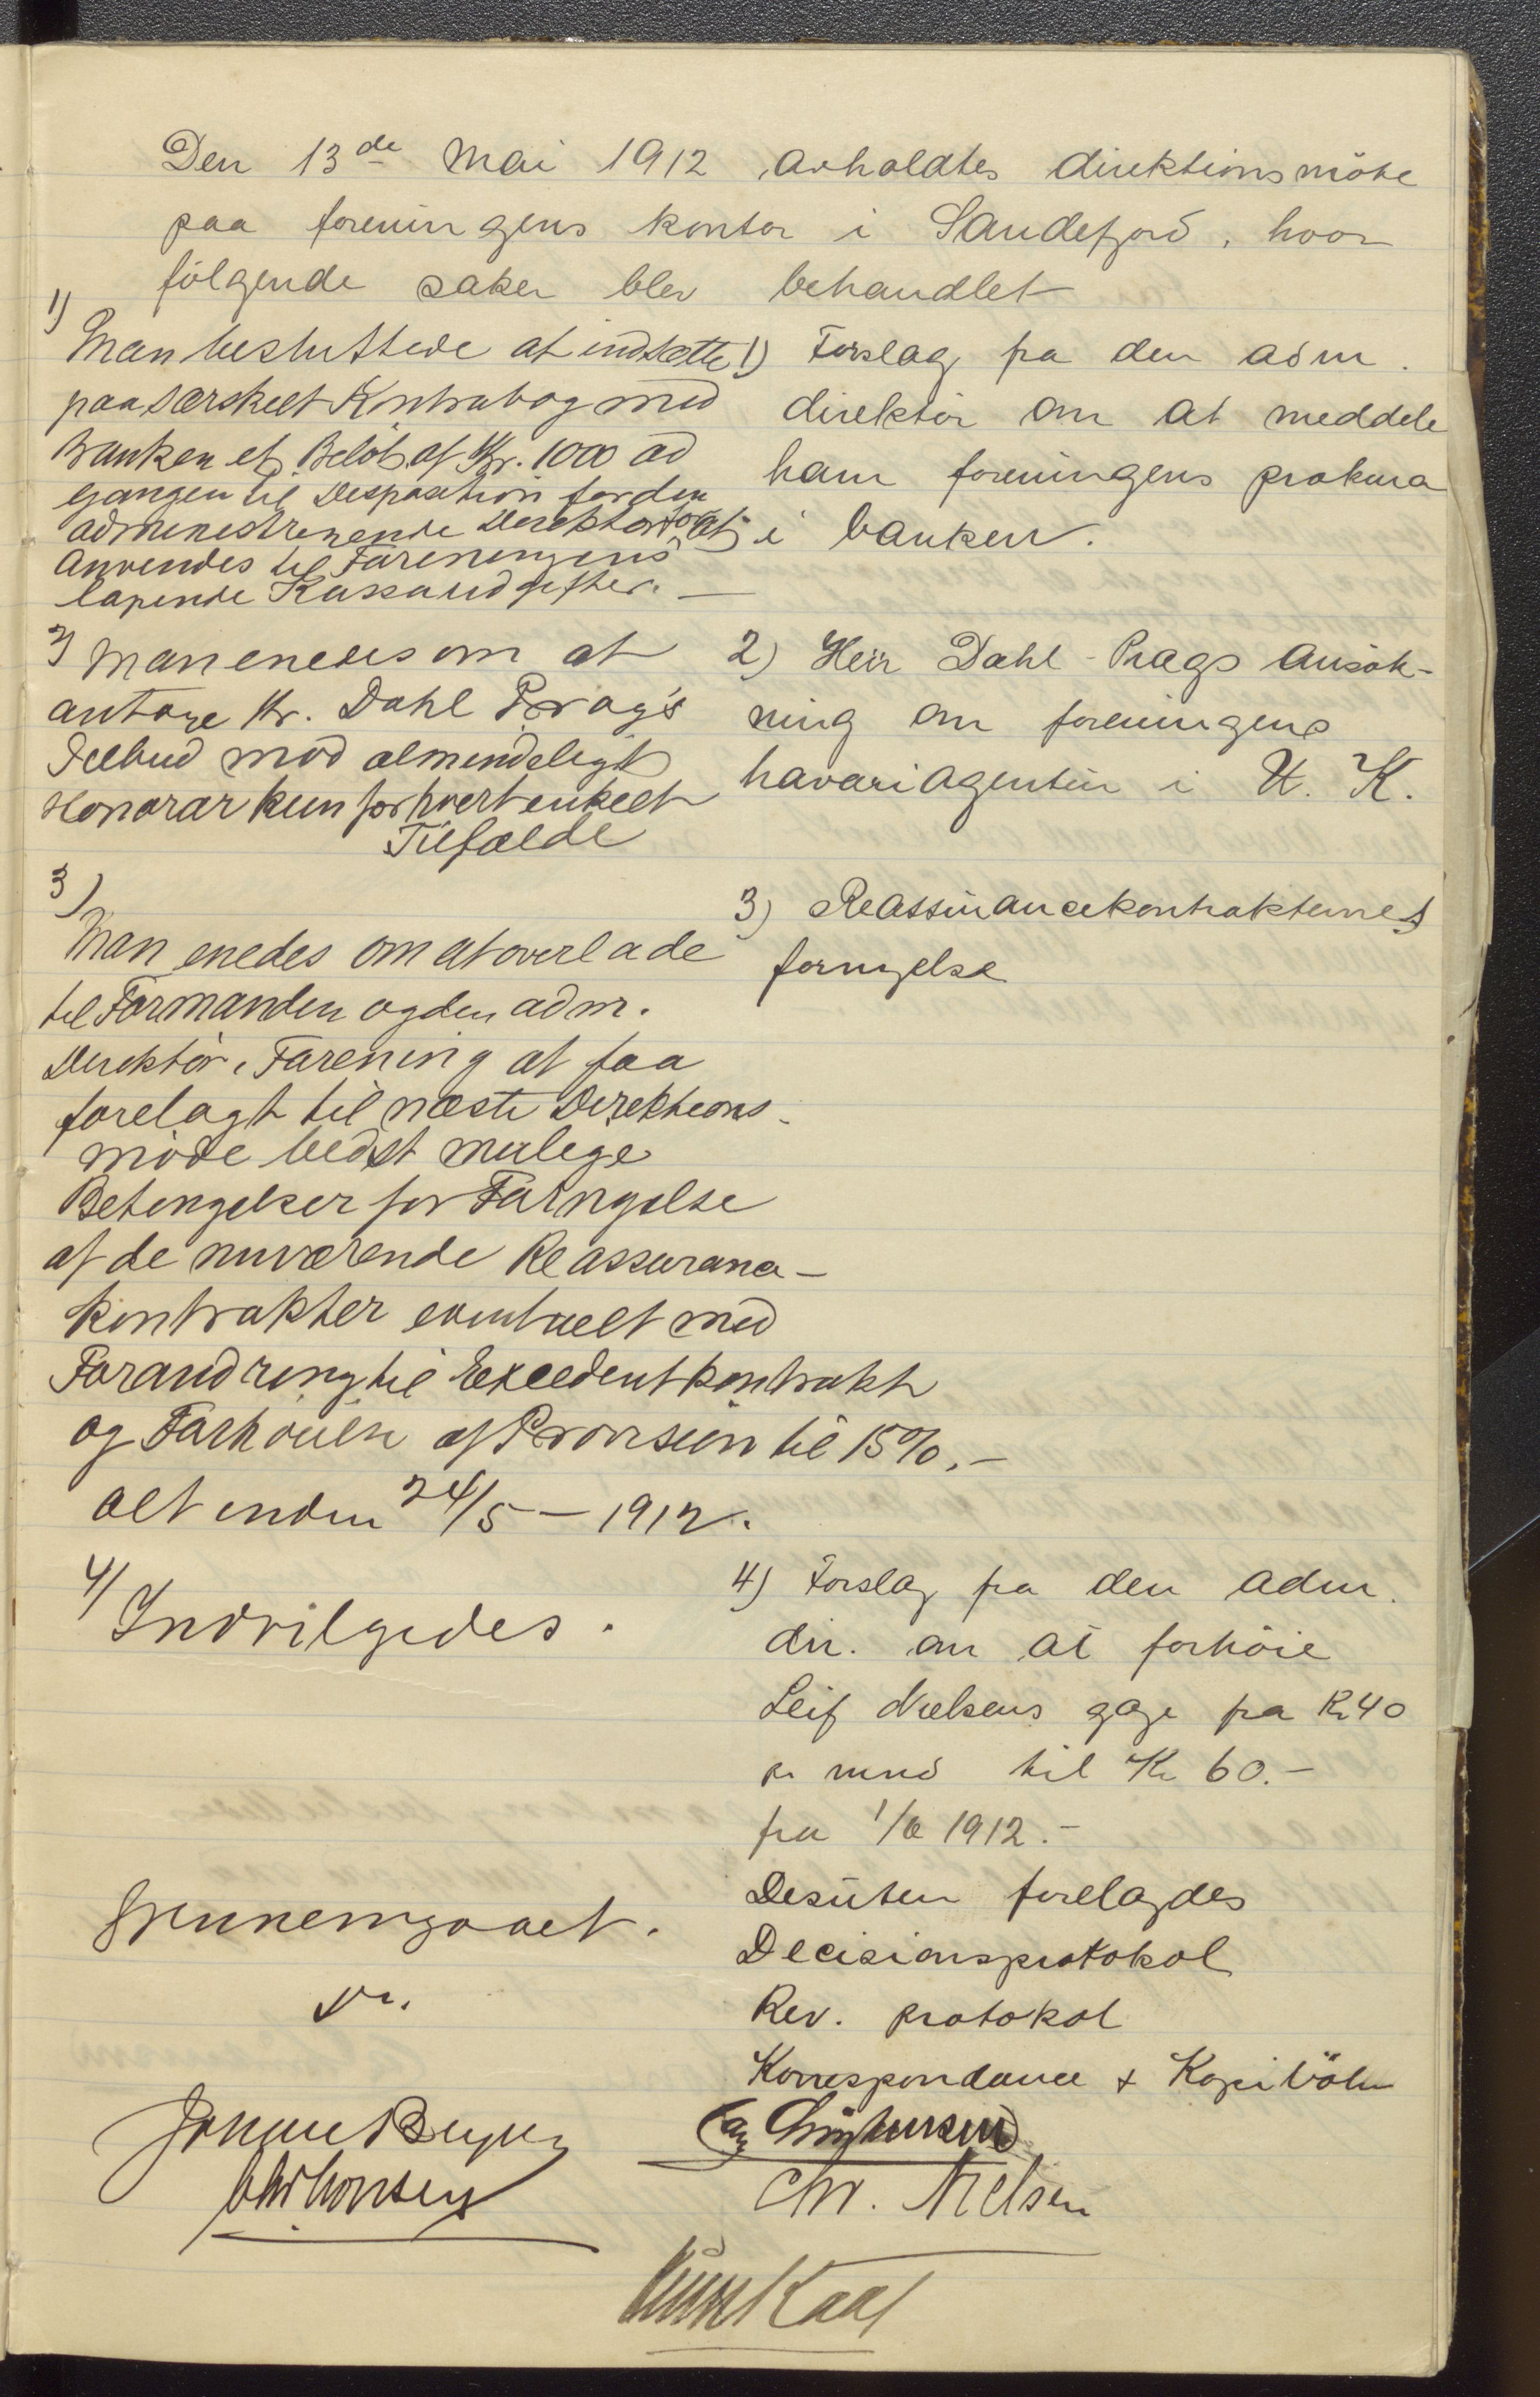 Den 13de Mai 1912 avholdtes direktionsmöte
paa foreningens kontor i Sandefjord, hvor
fölgende saker blev behandlet
1)
Man besluttede at indsætte
paa særskilt Kontrabog med
Banken et Belöb af Kr. 1000 ad
gangen til Disposition for den
administrerende Direktör for at
anvendes til Foreningens
löpende Kassaudgifter. —
1) Forslag fra den adm.
direktör om at meddele
ham foreningens prokura
i banken.
2) Man enedes om at
antage Hr. Dahl Prag's
Tilbud mod almindeligt
Honorar kun for hvert enkelt
Tilfælde
2) Herr Dahl-Prags Ansök-
ning om foreningens
havariagentur i U. K.
3)
Man enedes om at overlade
til Formanden og den adm.
Direktör i Forening at faa
forelagt til næste Direktions-
möde bedst mulige
Betingelser for Fornyelse
af de nuværende Reassurance-
kontrakter eventuelt med
Forandring til Excedentkontrakt
og Forhöielse af Provision til 15%.-
alt inden 24/5 - 1912.
3) Reassurancekontrakternes
fornyelse
4/
Indvilgedes.
4) Forslag fra den adm.
dir. om at forhöie
Leif Nielsens gage fra Kr 40
pr mnd til Kr 60.-
fra 1/6 1912.-
Gjennemgaaet.
Desuten forelagdes
Decisionsprotokol
Rev. protokol
Korrespondance + Kopiböker
Johan Bryde
Chr. Nielsen